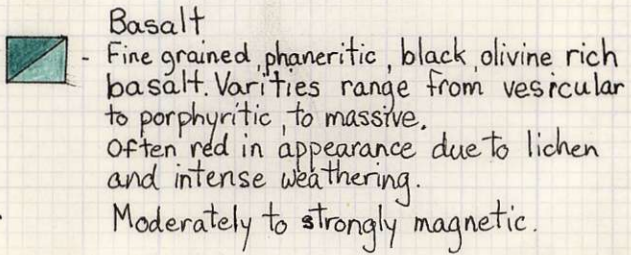 Basalt
- Fine grained, phaneritic, black, olivine rich
basalt. Varities range from vesicular
to porphyritic, to massive.
Often red in appearance due to lichen
and intense weathering.
Moderately to strongly magnetic.